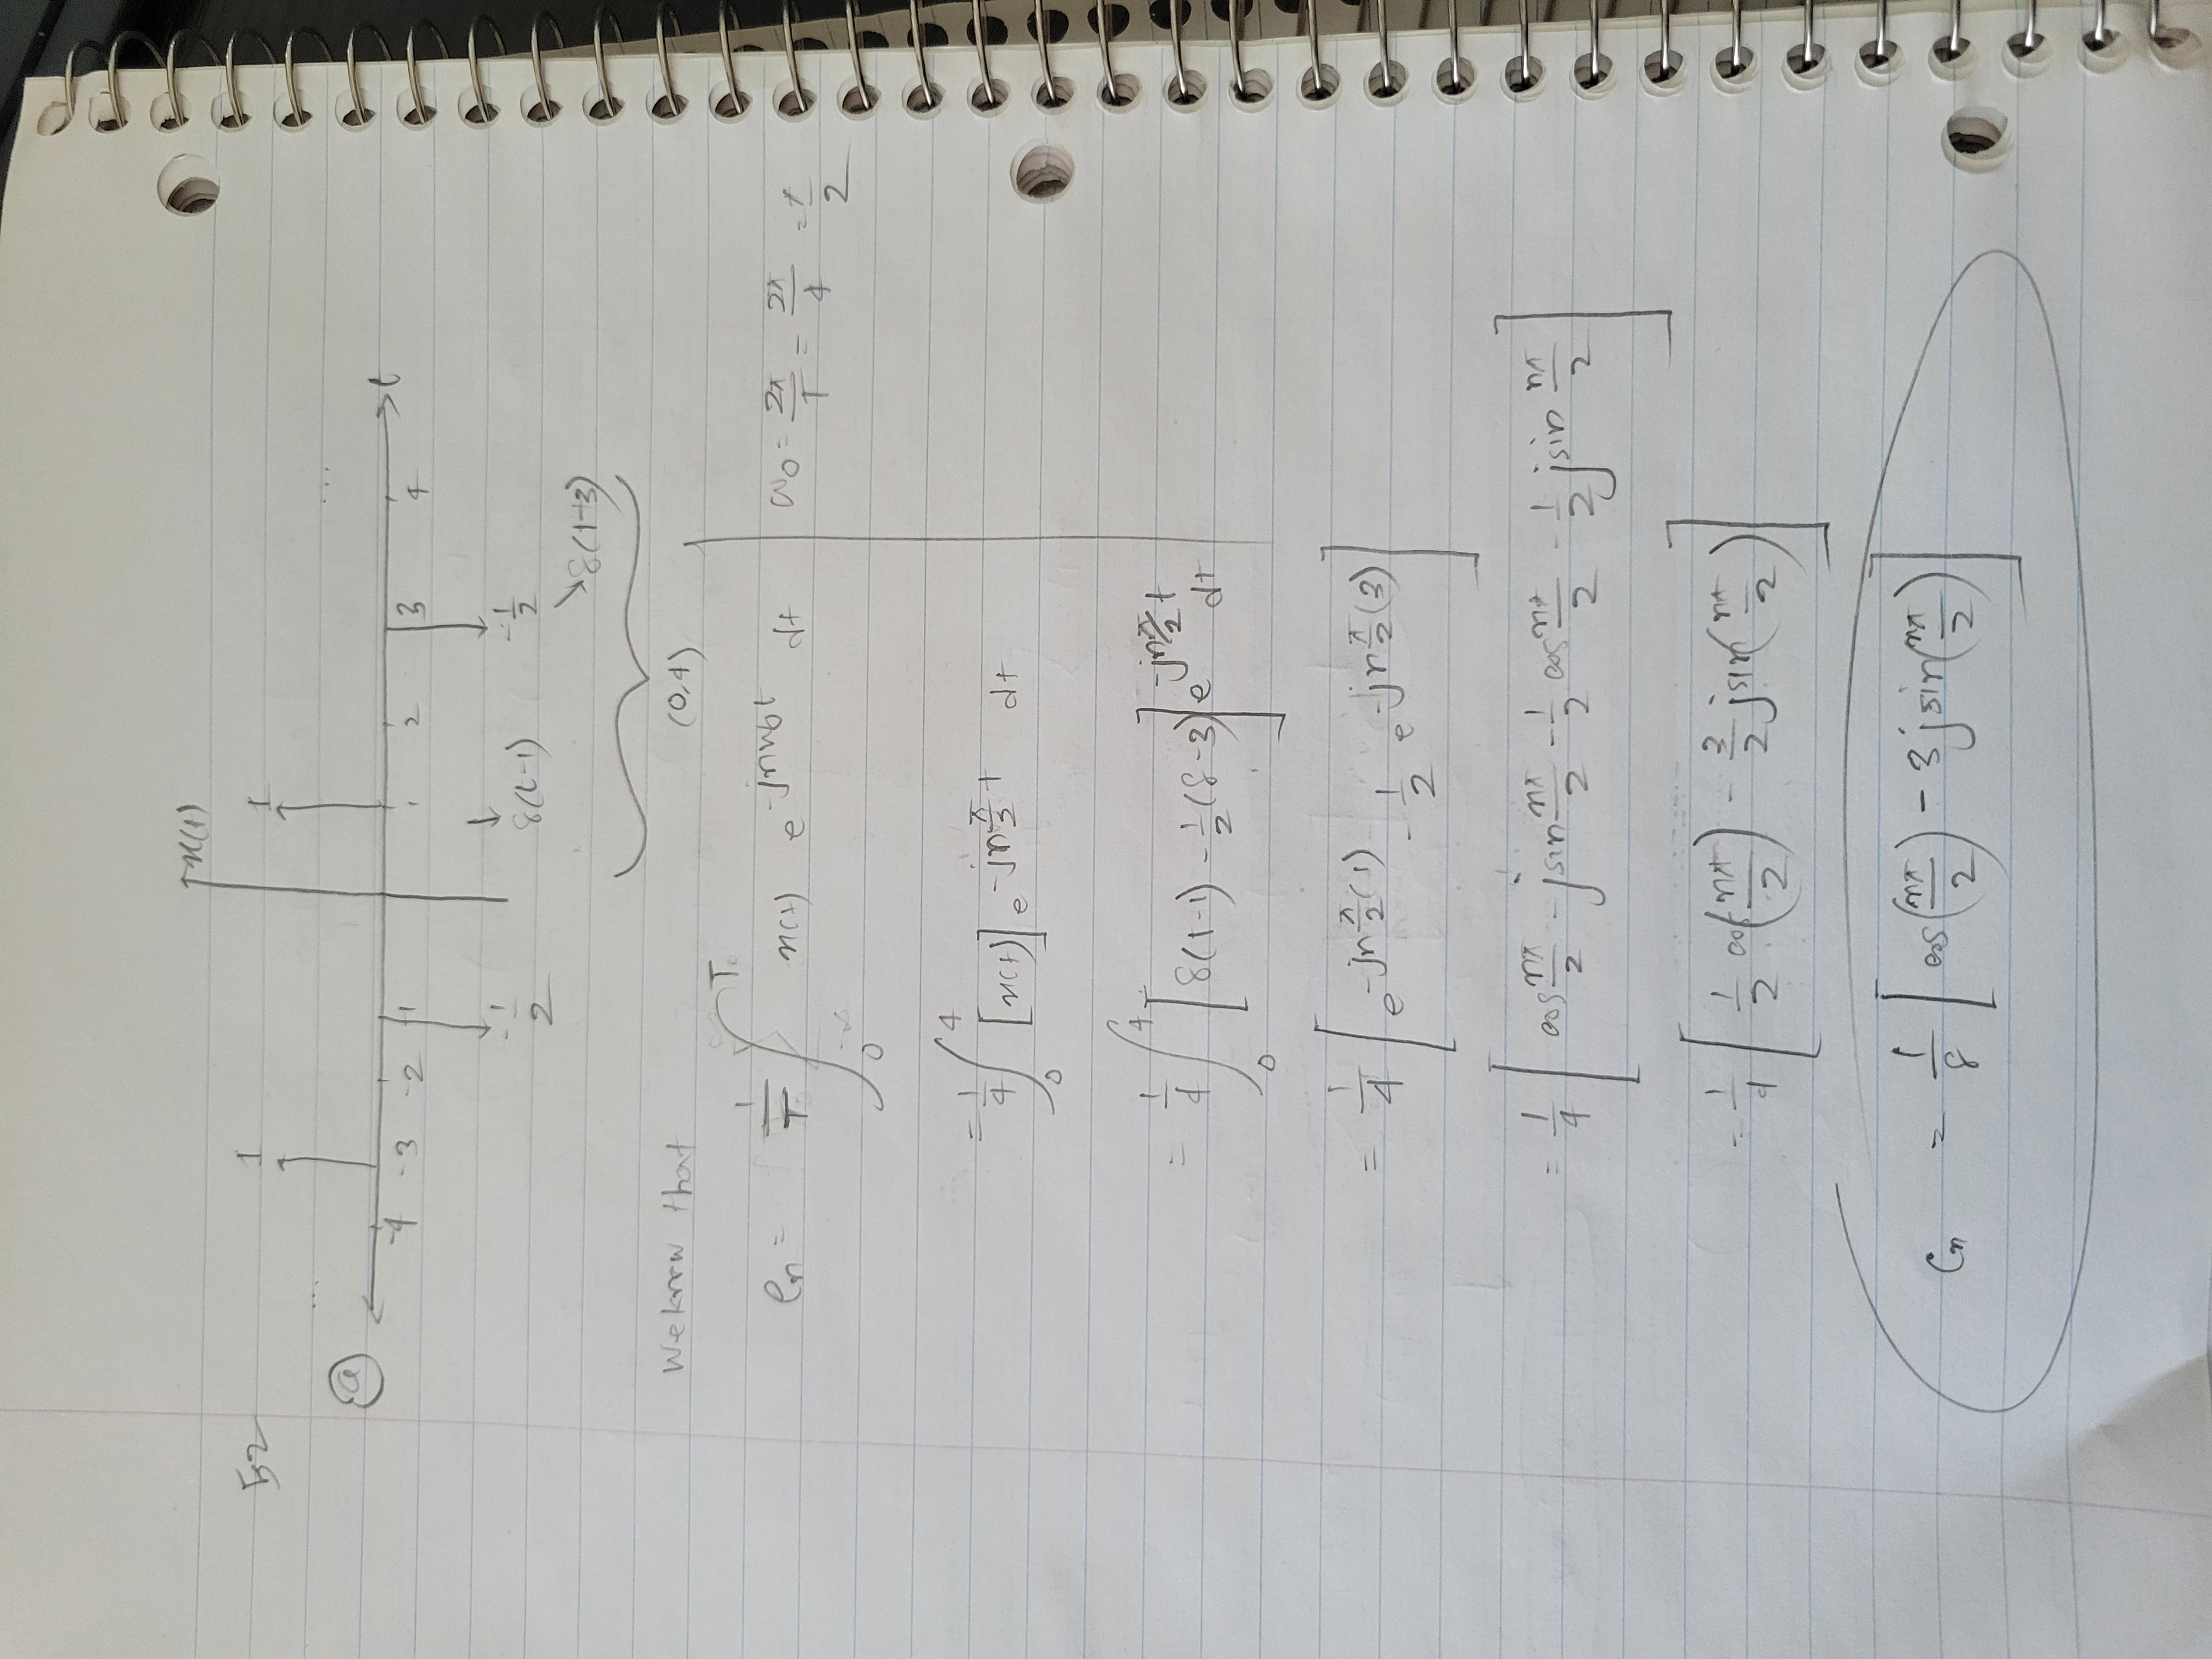 x(t)
5.2
1 1
... ...
(a)
-4 -3 -2 -1 1 2 3 4 t
-1/2 δ(t-1) -1/2
δ(t+3)
(0,4)
We know that
Cn = 1/T₀ ∫₀^T₀ x(t) e^(-jnω₀t) dt
ω₀ = 2π/T = 2π/4 = π/2
= 1/4 ∫₀^4 [x(t)] e^(-jnπ/2 t) dt
= 1/4 ∫₀^4 [δ(t-1) - 1/2(δ-3)] e^(-jnπ/2 t) dt
= 1/4 [e^(-jnπ/2(1)) - 1/2 e^(-jnπ/2(3))]
= 1/4 [cos nπ/2 - jsin nπ/2 - 1/2 cos nπ/2 - 1/2 jsin nπ/2]
= 1/4 [1/2 cos(nπ/2) - 3/2 jsin(nπ/2)]
Cn = 1/8 [cos(nπ/2) - 3jsin(nπ/2)]